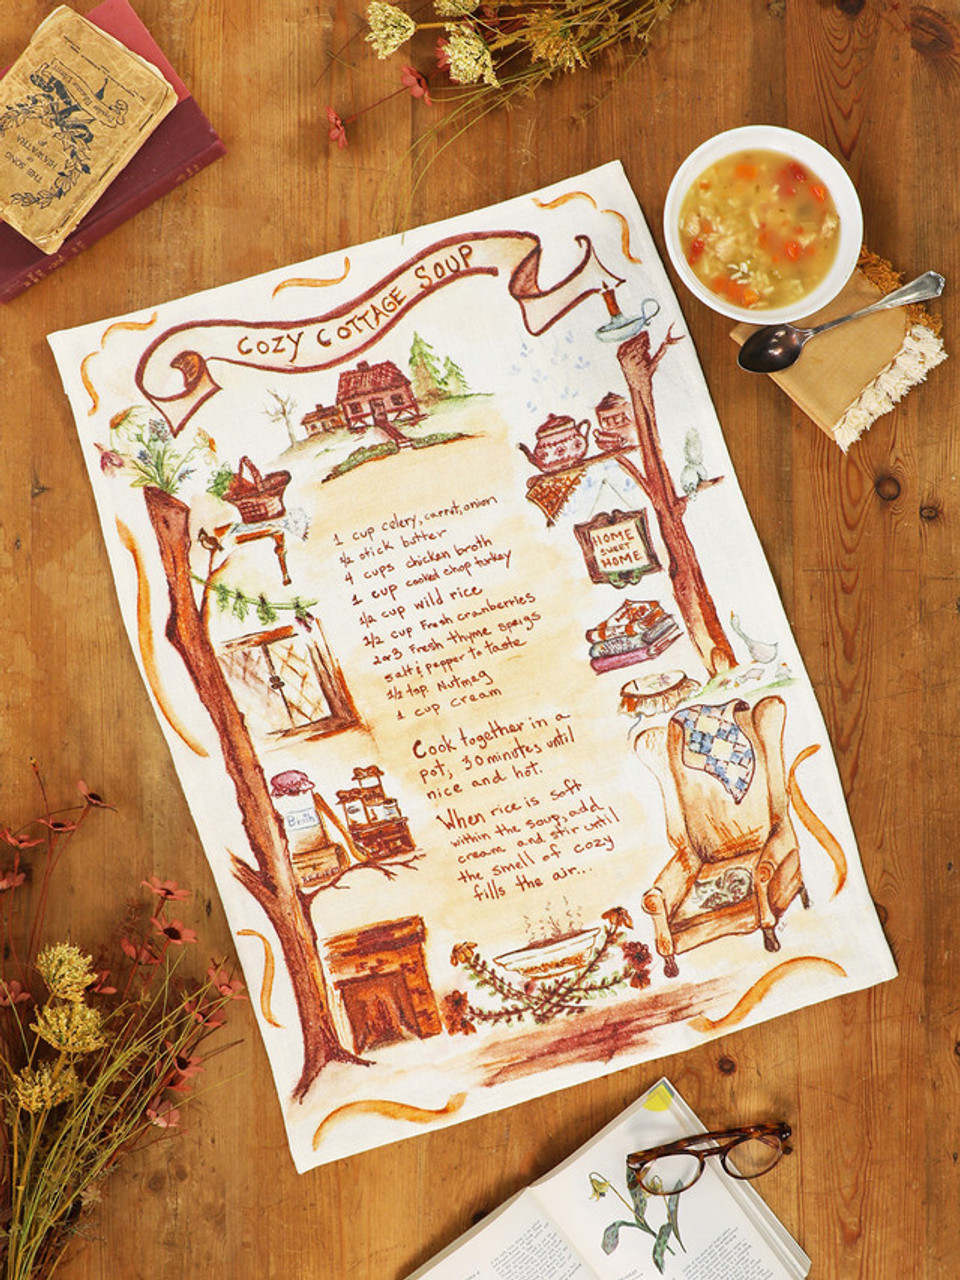 THE SONG
HIAWATHA
COZY COTTAGE SOUP
1 cup celery, carrot, onion
½ stick butter
4 cups chicken broth
1 cup cooked chop turkey
1/2 cup wild rice
1/2 cup Fresh cranberries
2or3 Fresh thyme sprigs
salt & pepper to taste
1/2 tsp. Nutmeg
1 cup cream
Cook together in a
pot, 30 minutes until
nice and hot.
When rice is soft
within the soup, add
cream and stir until
the smell of cozy
fills the air...
HOME
SWEET
HOME
Broth